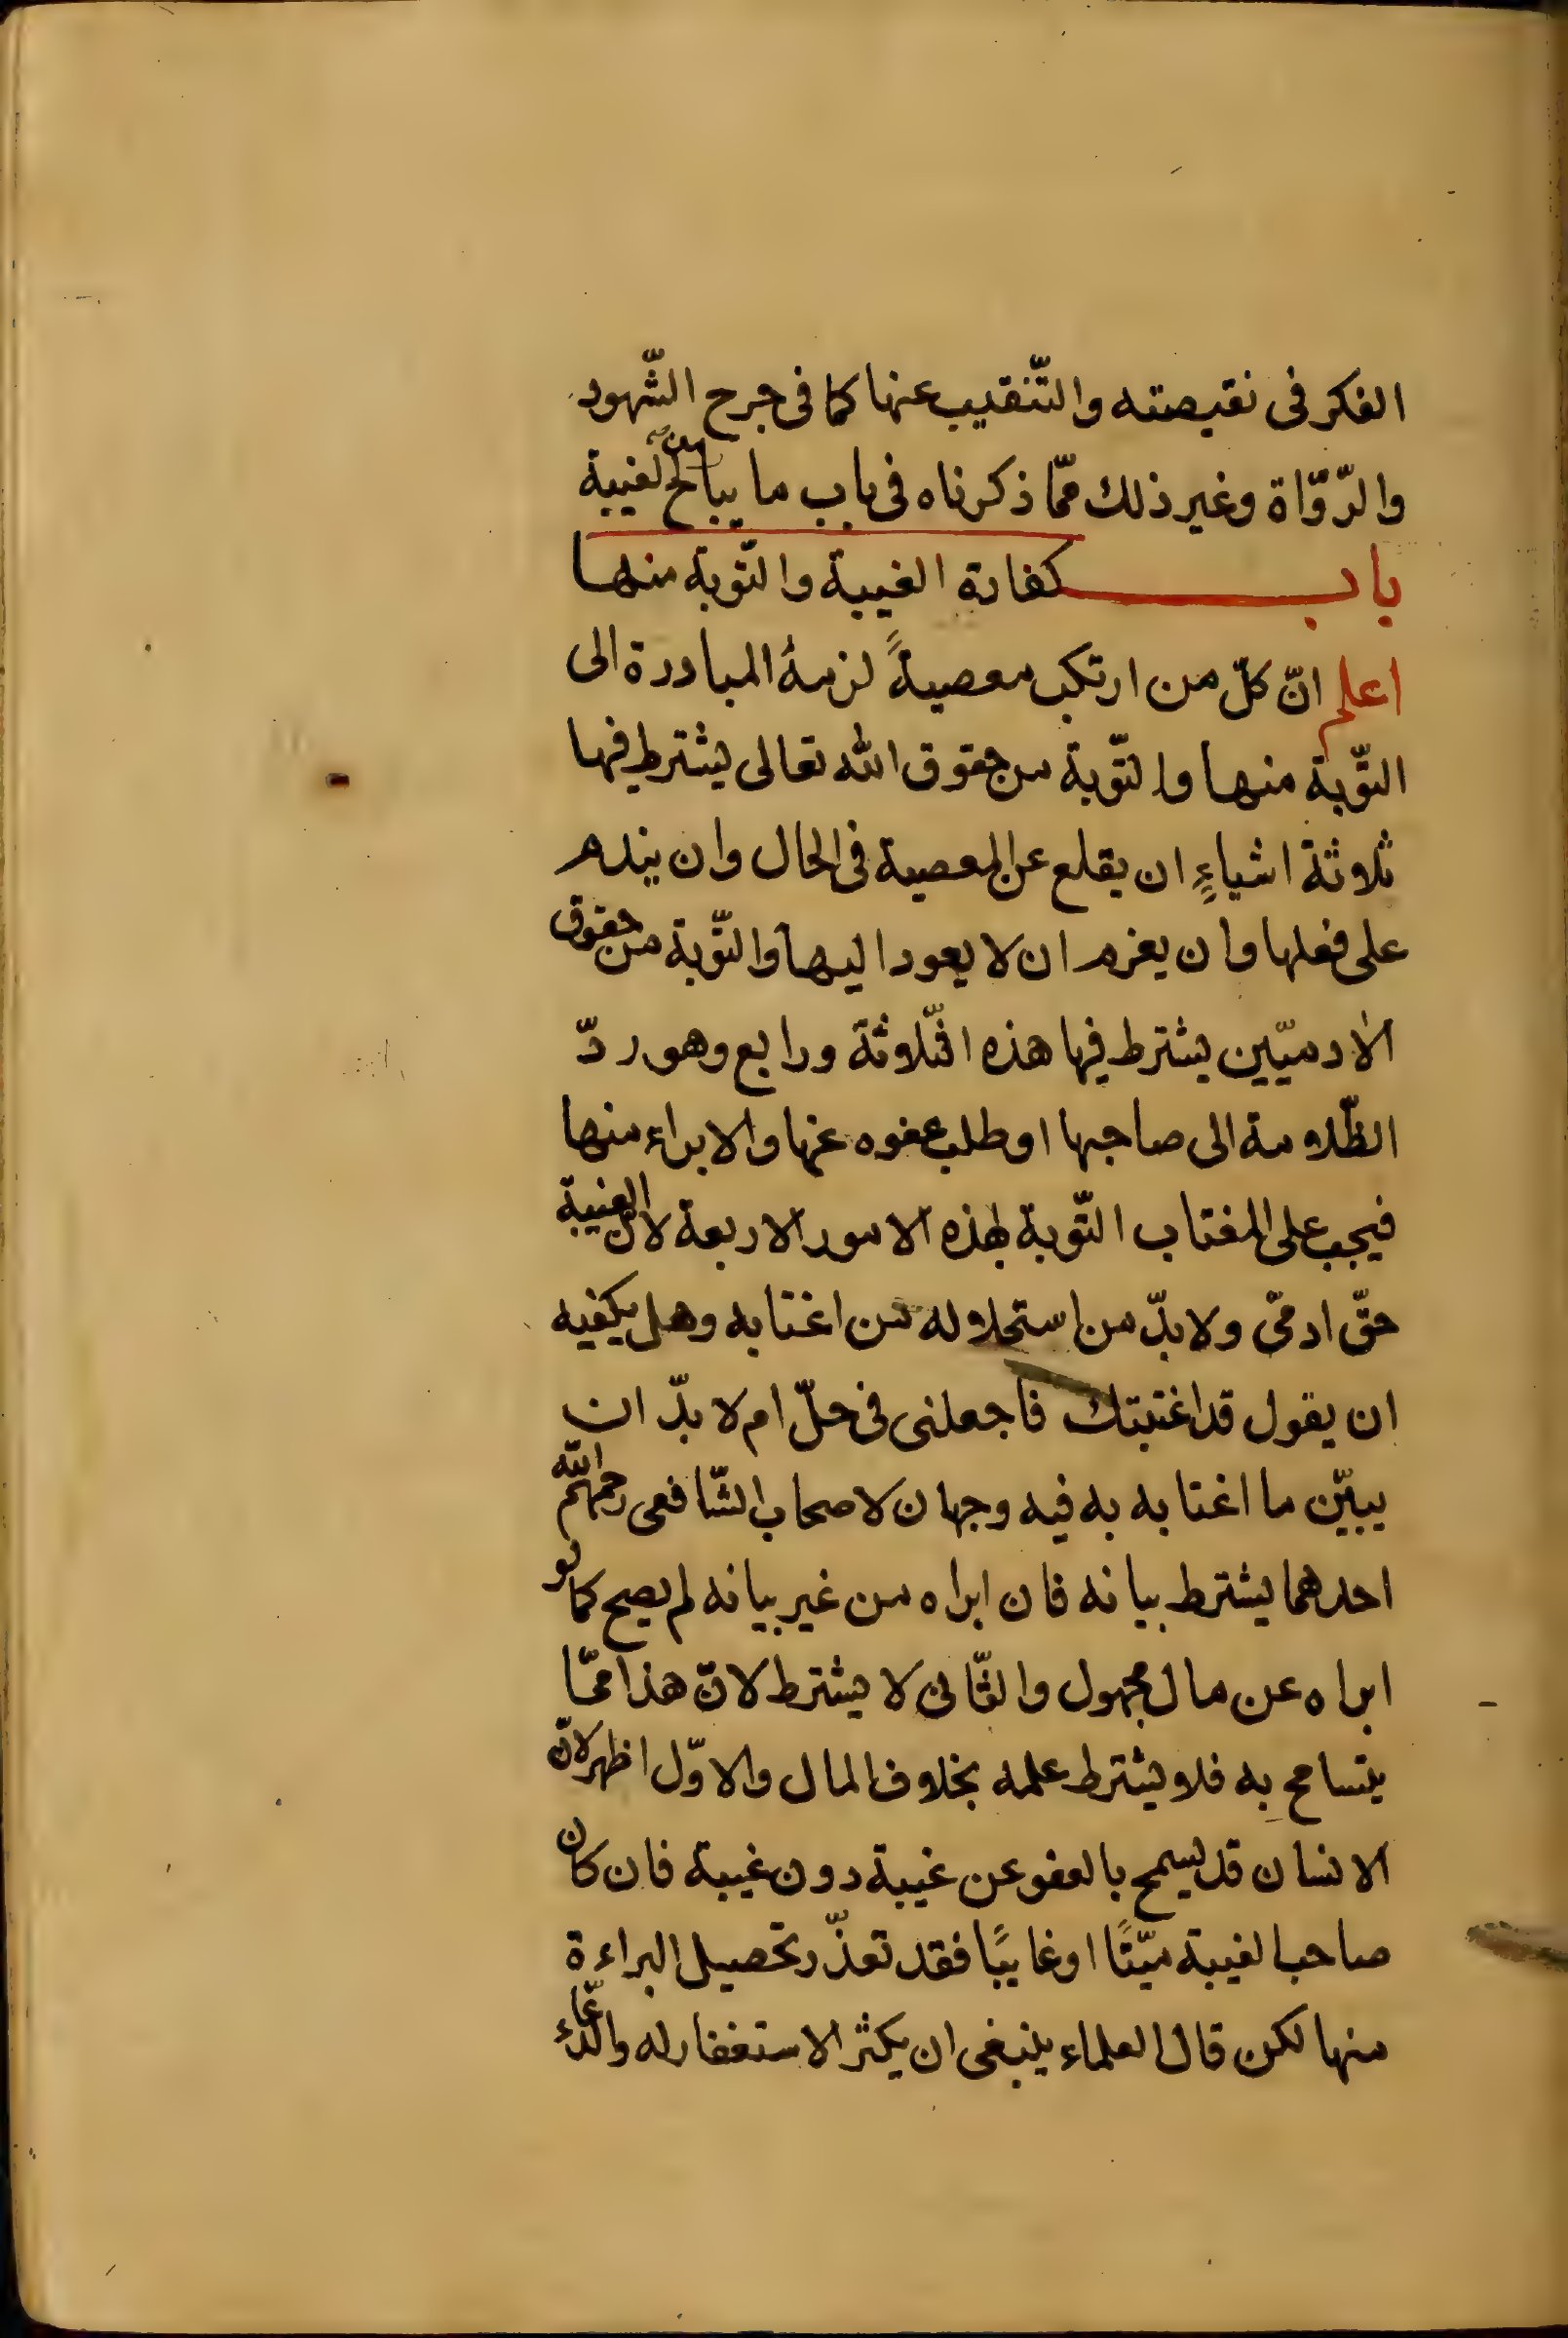 الفكر فى نقيصته والتّنقيب عنها كما فى جرح الشّهود
والرّوّاة وغير ذلك ممّا ذكرناه فى باب ما يباح من الغيبة
باب كفارة الغيبة والتّوبة منها
اعلم انّ كلّ من ارتكب معصيةً لزمهُ المبادرة الى
التّوبة منها والتّوبة من حقوق الله تعالى يشترط فيها
ثلاثة اشياءٍ ان يقلع عن المعصية فى الحال وان يندم
على فعلها وان يعزم ان لا يعود اليها والتّوبة من حقوق
الادميّين يشترط فيها هذه الثّلاثة ورابع وهو ردّ
الظّلامة الى صاحبها او طلب عفوه عنها والابراء منها
فيجب على المغتاب التّوبة بهذه الامور الاربعة لانّ الغيبة
حقّ ادمىّ ولا بدّ من استحلاله من اغتابه وهل يكفيه
ان يقول قد اغتبتك فاجعلنى فى حلّ ام لا بدّ ان
يبيّن ما اغتابه به فيه وجهان لاصحاب الشّافعى رحمهم الله
احدهما يشترط بيانه فان ابراه من غير بيانه لم يصح كما لو
ابراه عن مال مجهول والثّانى لا يشترط لانّ هذا ممّا
يتسامح به فلا يشترط علمه بخلاف المال والاوّل اظهر لانّ
الانسان قد يسمح بالعفو عن غيبة دون غيبة فان كان
صاحب الغيبة ميّتًا او غايبًا فقد تعذّر تحصيل البراءة
منها لكن قال العلماء ينبغى ان يكثر الاستغفار له والدّعاء